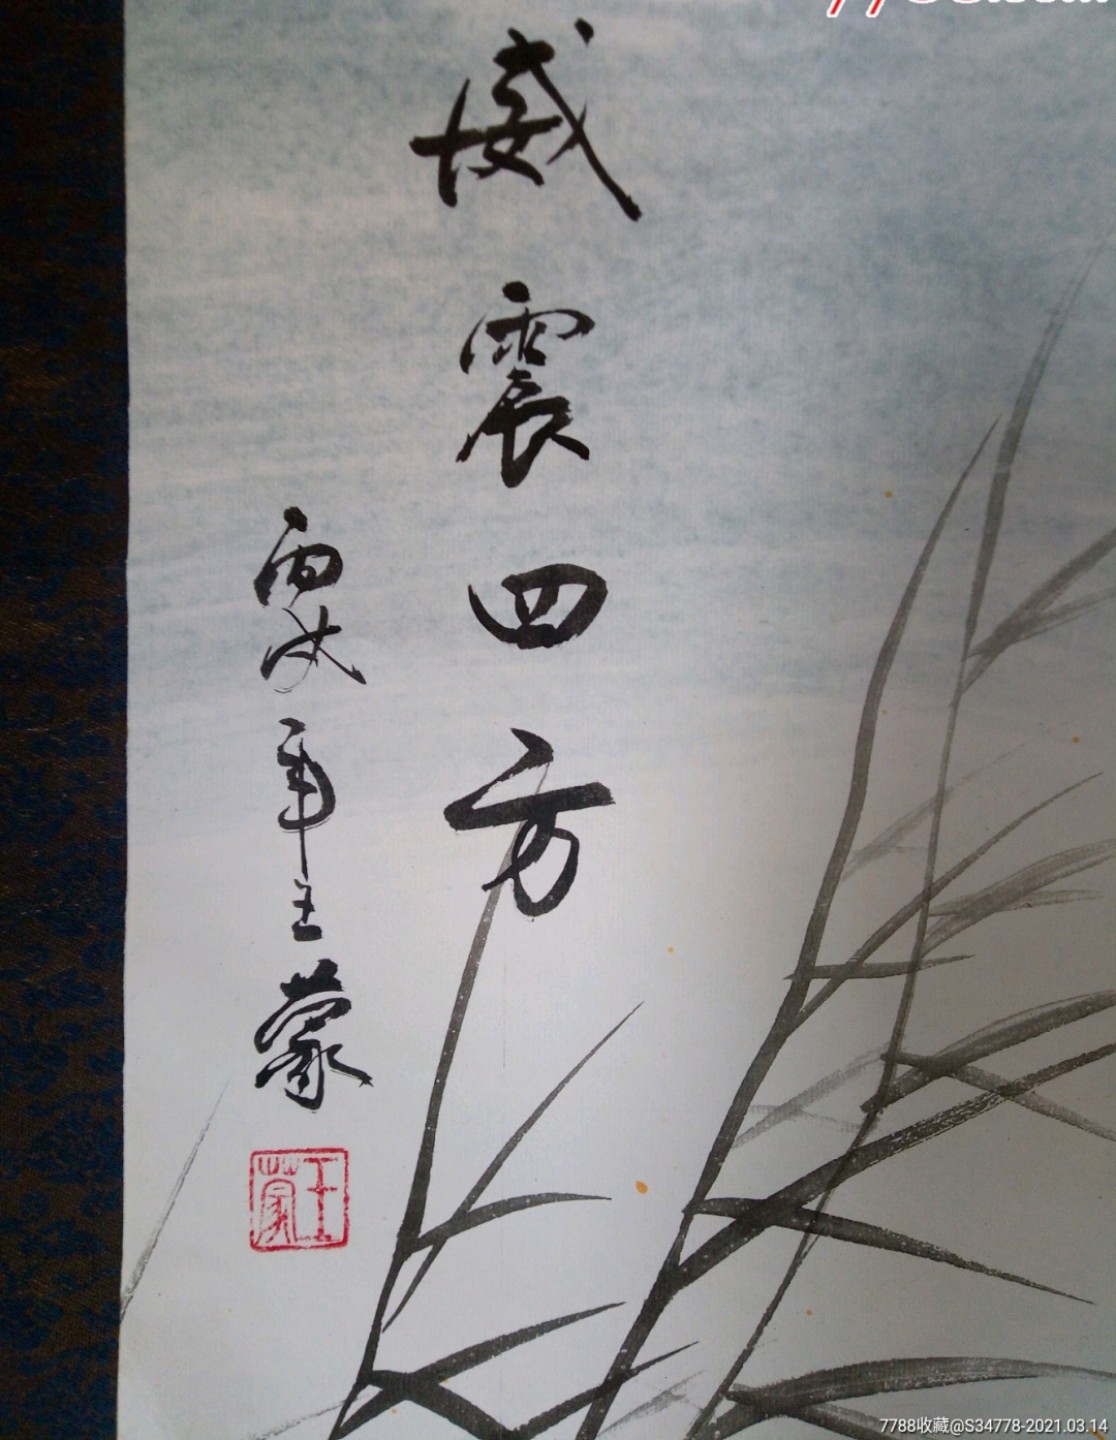 威震四方
丙戌年王蒙
王蒙
7788收藏@S34778-2021.03.14